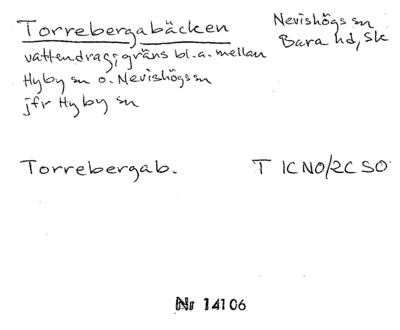 Torrebergabäcken
Nevishögs sn
Bara hd, Sk
vattendrag; gräns bl.a. mellan
Hyby sn o. Nevishögs sn
jfr Hyby sn
Torrebergab.
T 1C NO/2C SO
Nr 14106